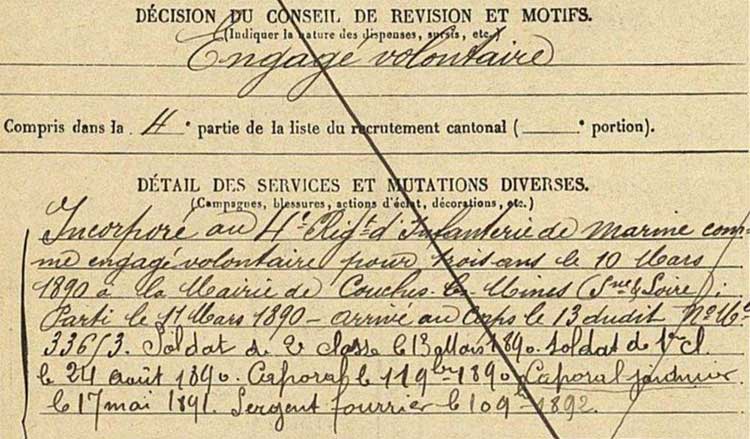 DÉCISION DU CONSEIL DE REVISION ET MOTIFS.
(Indiquer la nature des dispenses, sursis, etc.)
Engagé volontaire
Compris dans la 4e partie de la liste du recrutement cantonal (         e portion).
DÉTAIL DES SERVICES ET MUTATIONS DIVERSES.
(Campagnes, blessures, actions d'éclat, décorations, etc.)
Incorporé au 4e Régt d'Infanterie de marine com-
me engagé volontaire pour trois ans le 10 Mars
1890 à la Mairie de Couches les Mines (Sne & Loire);
Parti le 11 Mars 1890 - arrivé au Corps le 13 dudit No Mle
33673. Soldat de 2e classe le 13 Mars 1890. Soldat de 1re Cl.
le 24 août 1890. Caporal le 11 9bre 1890. Caporal fourrier
le 17 mai 1891. Sergent fourrier le 10 9bre 1892.